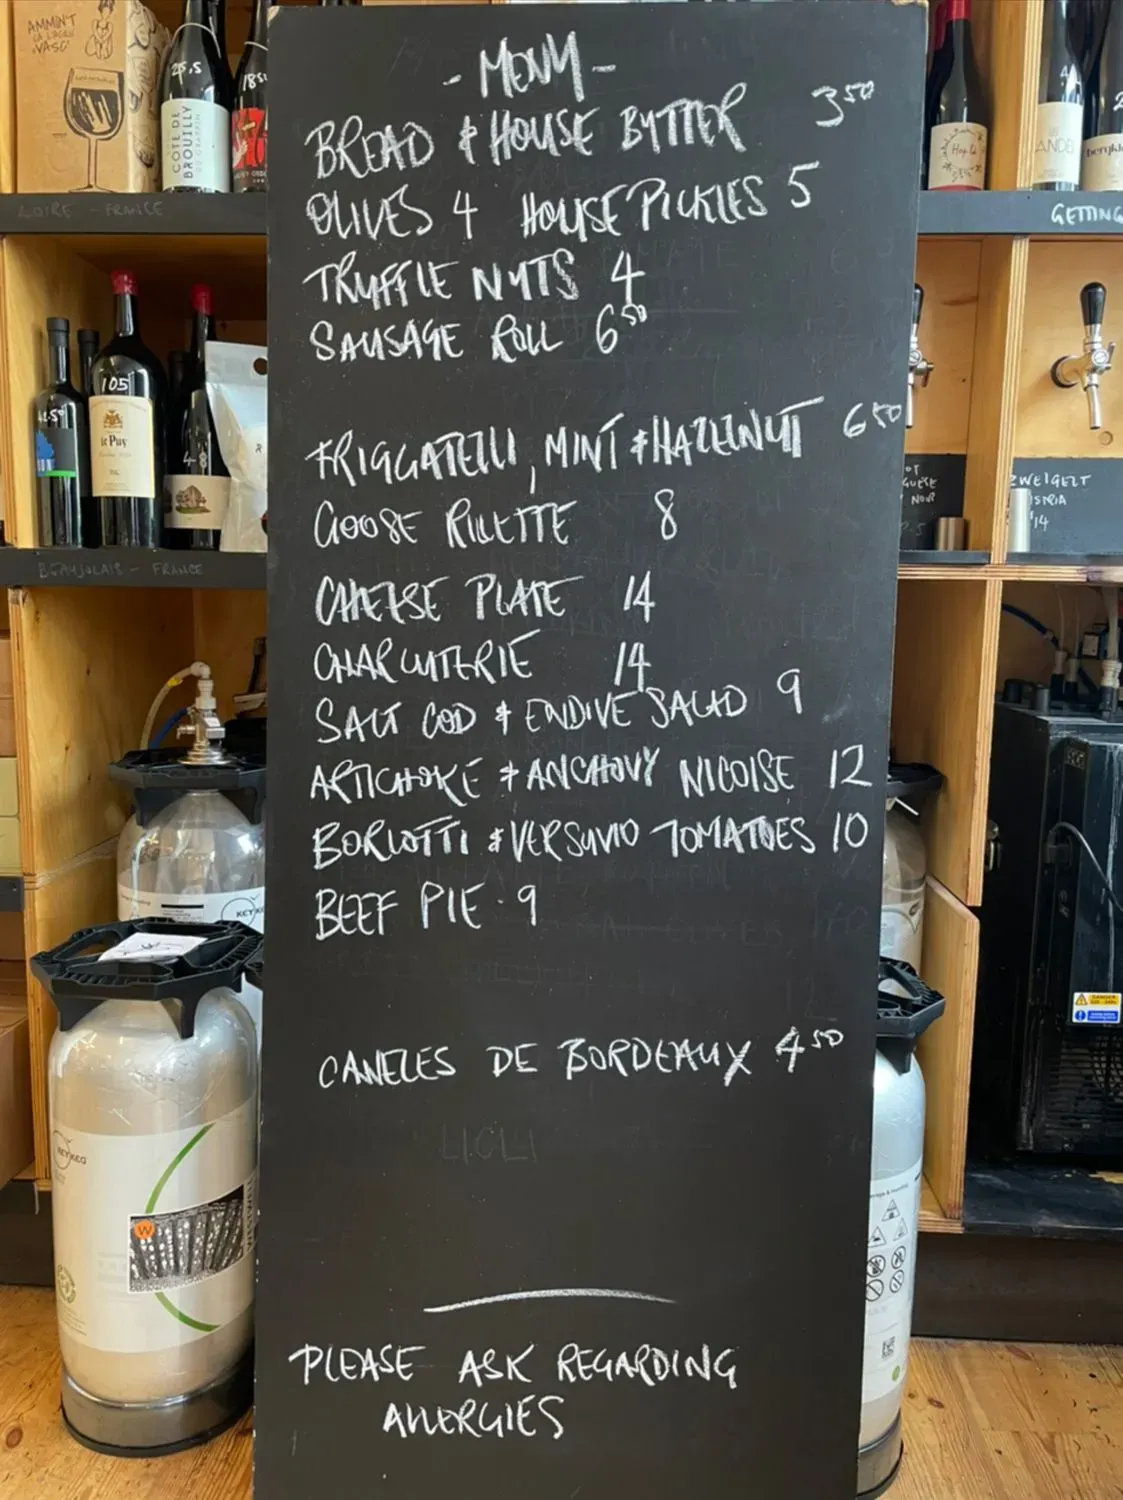 - MENU -
BREAD & HOUSE BUTTER 3⁵⁰
OLIVES 4 HOUSE PICKLES 5
TRUFFLE NUTS 4
SAUSAGE ROLL 6⁵⁰
FRIGGATELLI, MINT & HAZELNUT 6⁵⁰
GOOSE RILLETTE 8
CHEESE PLATE 14
CHARCUTERIE 14
SALT COD & ENDIVE SALAD 9
ARTICHOKE & ANCHOVY NICOISE 12
BORLOTTI & VERSUVIO TOMATOES 10
BEEF PIE · 9
CANELES DE BORDEAUX 4⁵⁰
PLEASE ASK REGARDING
ALLERGIES
AMMIN'T
VASO'
25,5
CÔTE DE
BROUILLY
LOIRE - FRANCE
105
le Puy
48
BEAUJOLAIS - FRANCE
GETTING
ZWEIGELT
14
KEYKEG
W
DANGER